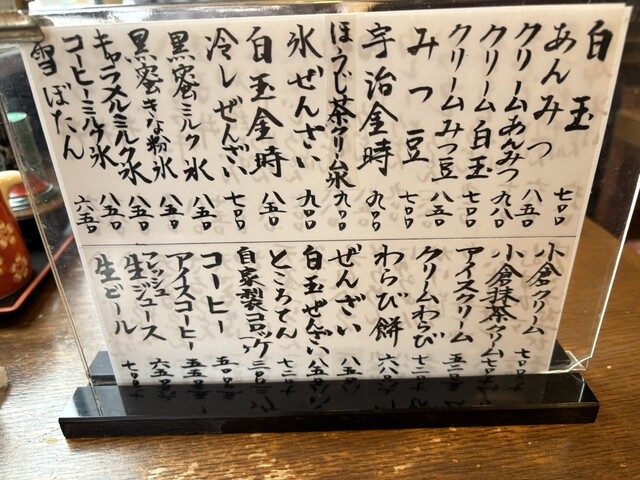 白玉 七〇〇
あんみつ 八五〇
クリームあんみつ 九八〇
クリーム白玉 七〇〇
クリームみつ豆 八五〇
みつ豆 七〇〇
宇治金時 九〇〇
ほうじ茶クリーム氷 九〇〇
氷ぜんざい 九〇〇
白玉金時 八五〇
冷しぜんざい 七〇〇
黒蜜ミルク氷 八五〇
黒蜜きな粉氷 八五〇
キャラメルミルク氷 八五〇
コーヒーミルク氷 八五〇
雪ぼたん 六五〇
小倉クリーム
小倉抹茶クリーム
アイスクリーム
クリームわらび
わらび餅 六八〇
ぜんざい 八五〇
白玉ぜんざい 八五〇
ところてん
自家製コロッケ 三〇〇
コーヒー 五〇〇
アイスコーヒー 五五〇
フレッシュ生ジュース 六五〇
生ビール 七〇〇